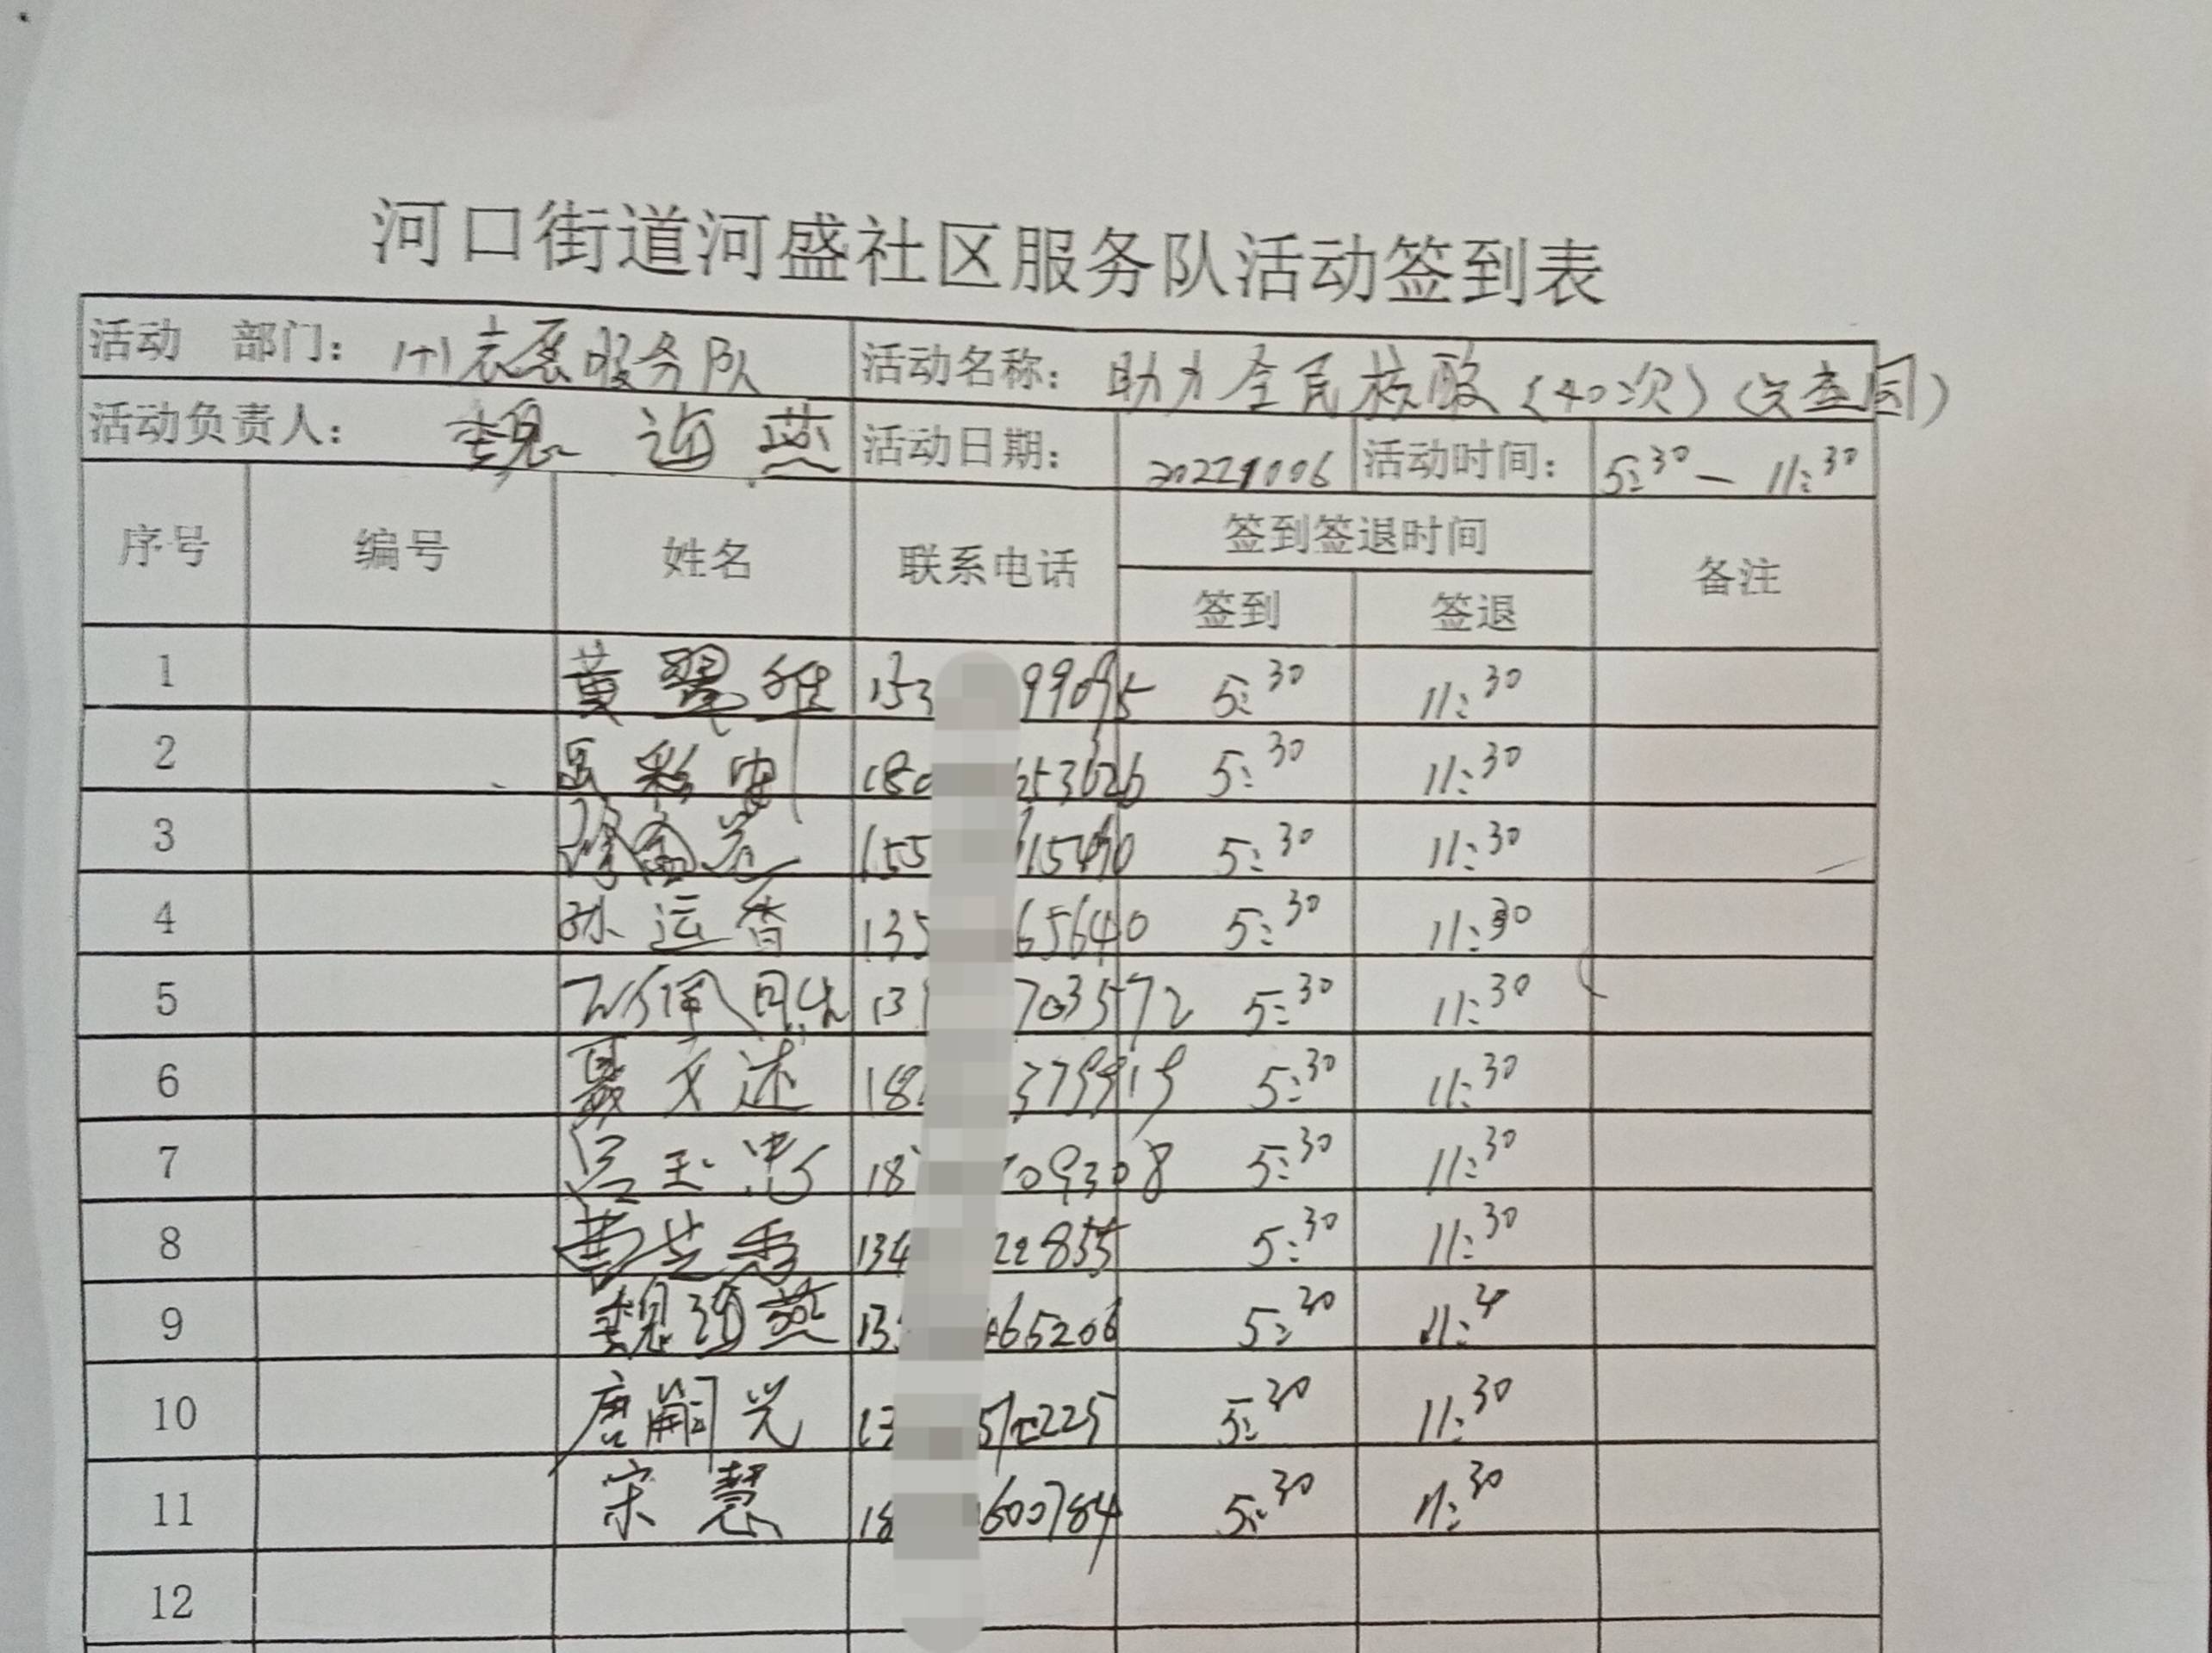 河口街道河盛社区服务队活动签到表
活动 部门： 1+1 服务队 活动名称： 助力全民核酸（40次）
活动负责人： 魏 燕 活动日期： 20221006 活动时间： 5:30 — 11:30
序号 编号 姓名 联系电话 签到签退时间 备注
签到 签退
1 黄翠 153 99095 5:30 11:30
2 彩 180 653626 5:30 11:30
3 155 5:30 11:30
4 孙运香 135 65640 5:30 11:30
5 13 703572 5:30 11:30
6 聂文述 18 5:30 11:30
7 玉忠 18 09308 5:30 11:30
8 芝秀 134 22855 5:30 11:30
9 魏 燕 13 65206 5:30 11:30
10 唐嗣兴 13 225 5:30 11:30
11 宋慧 18 600784 5:30 11:30
12